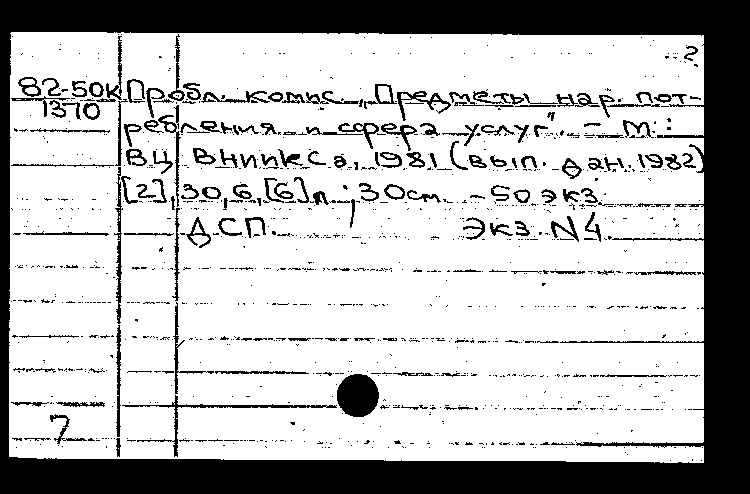 2
82-50к Пробл. комис. „Предметы нар. пот-
1370
ребления и сфера услуг". - М.:
ВЦ ВНИИКСа, 1981 (вып. дан. 1982)
[2], 30, 6, [6] л.; 30см. - 50 экз
ДСП. Экз. N4.
7